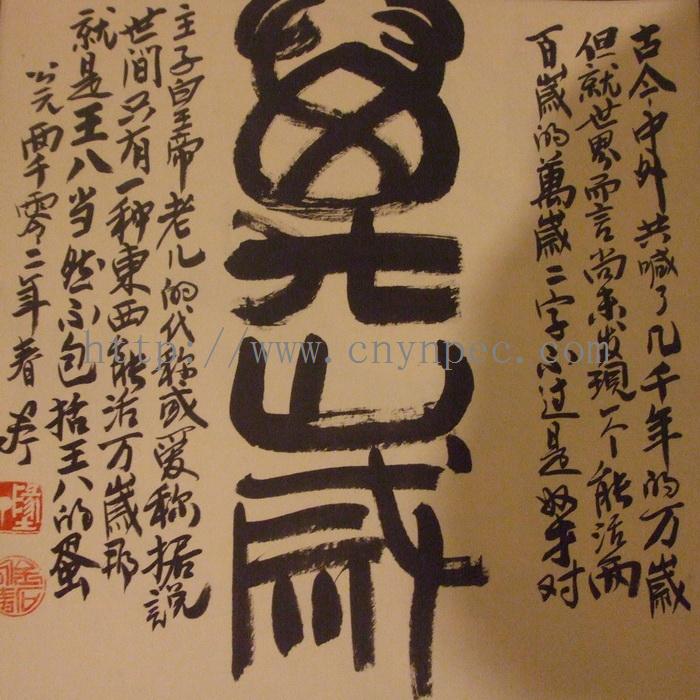 古今中外共喊了几千年的万歲
但就世界而言尚未发現一个能活两
百歲的萬歲二字不过是奴才对
萬歲
主子皇帝老儿的代称或爱称据説
世间只有一种東西能活万歲那
就是王八当然不包括王八的蛋
公元两千零二年春
http://www.cnynpec.com